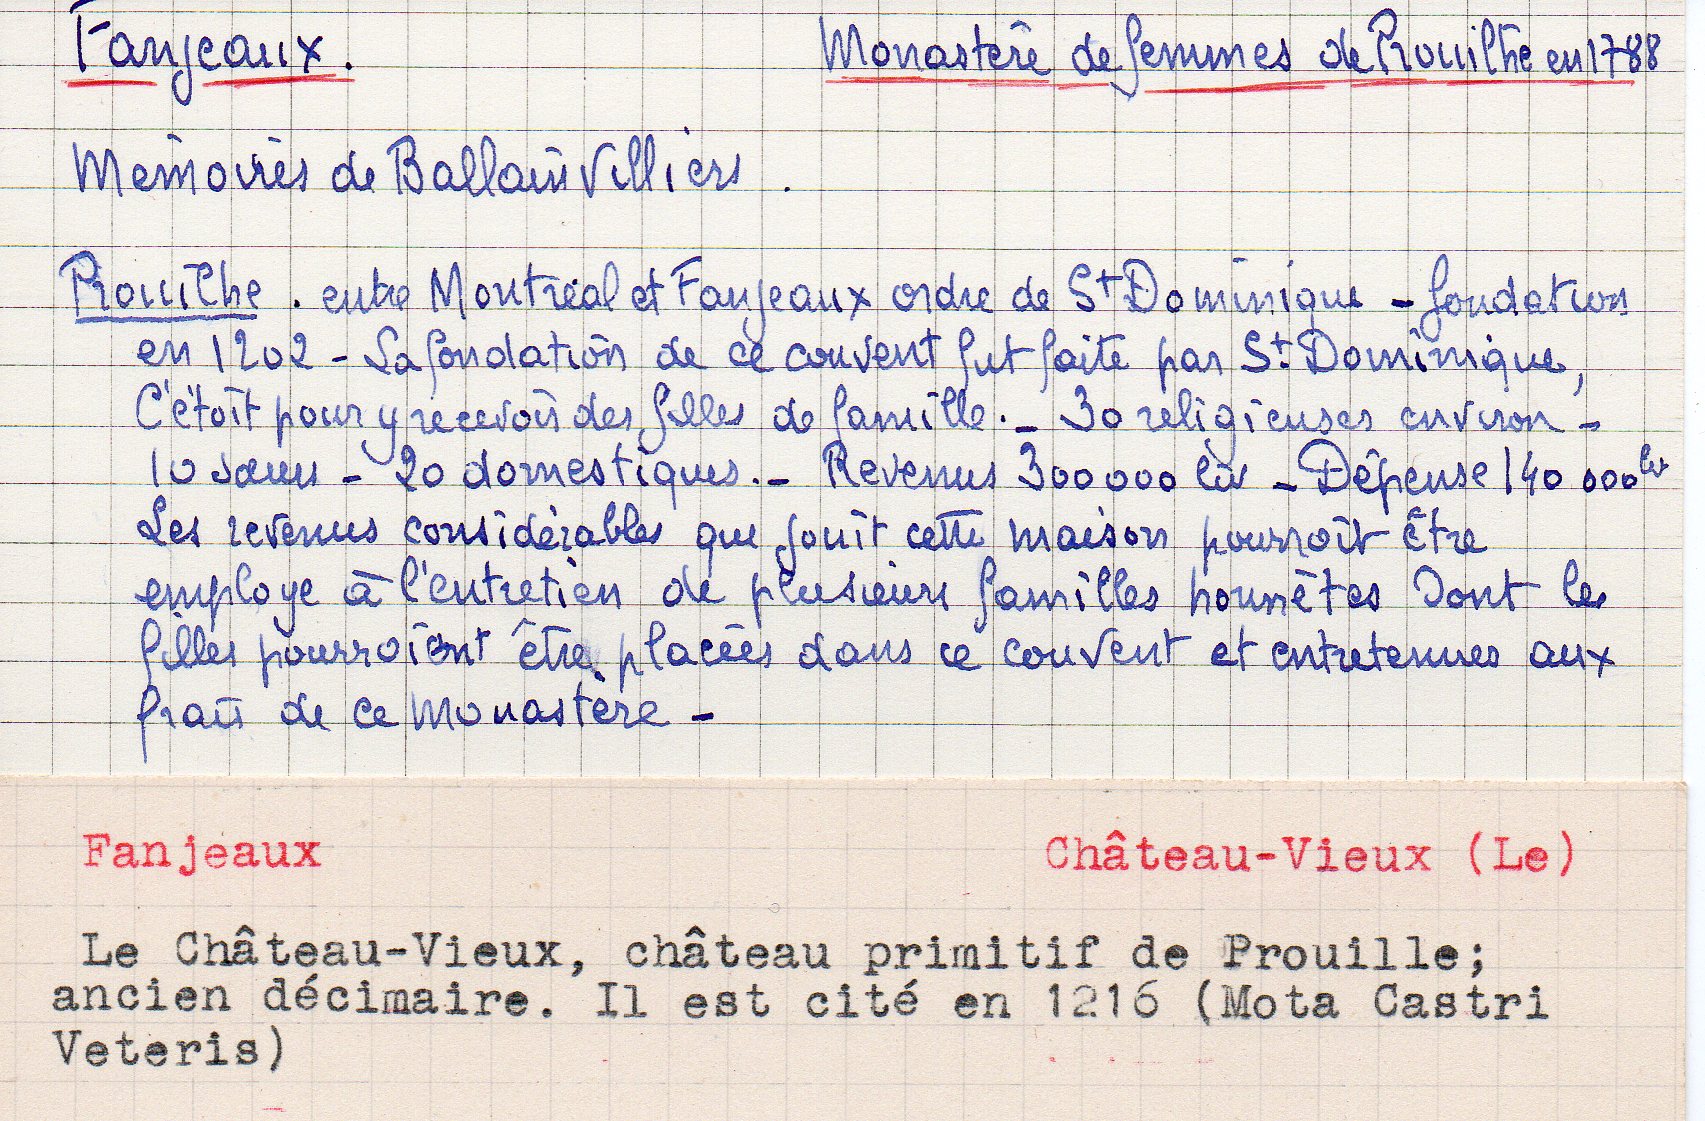 Fanjeaux.
Monastère de femmes de Prouilhe en 1788
Mémoires de Ballainvilliers.
Prouilhe. entre Montréal et Fanjeaux ordre de St Dominique - fondation
en 1202 - La fondation de ce couvent fut faite par St Dominique,
C'étoit pour y recevoir des filles de famille. - 30 religieuses environ -
10 sœurs - 20 domestiques. - Revenus 300 000 liv - Dépense 140 000 liv
Les revenus considérables que jouit cette maison pourroit être
employe à l'entretien de plusieurs familles honnêtes dont les
filles pourroient être placées dans ce couvent et entretenues aux
frais de ce monastère -
Fanjeaux
Château-Vieux (Le)
Le Château-Vieux, château primitif de Prouille;
ancien décimaire. Il est cité en 1216 (Mota Castri
Veteris)